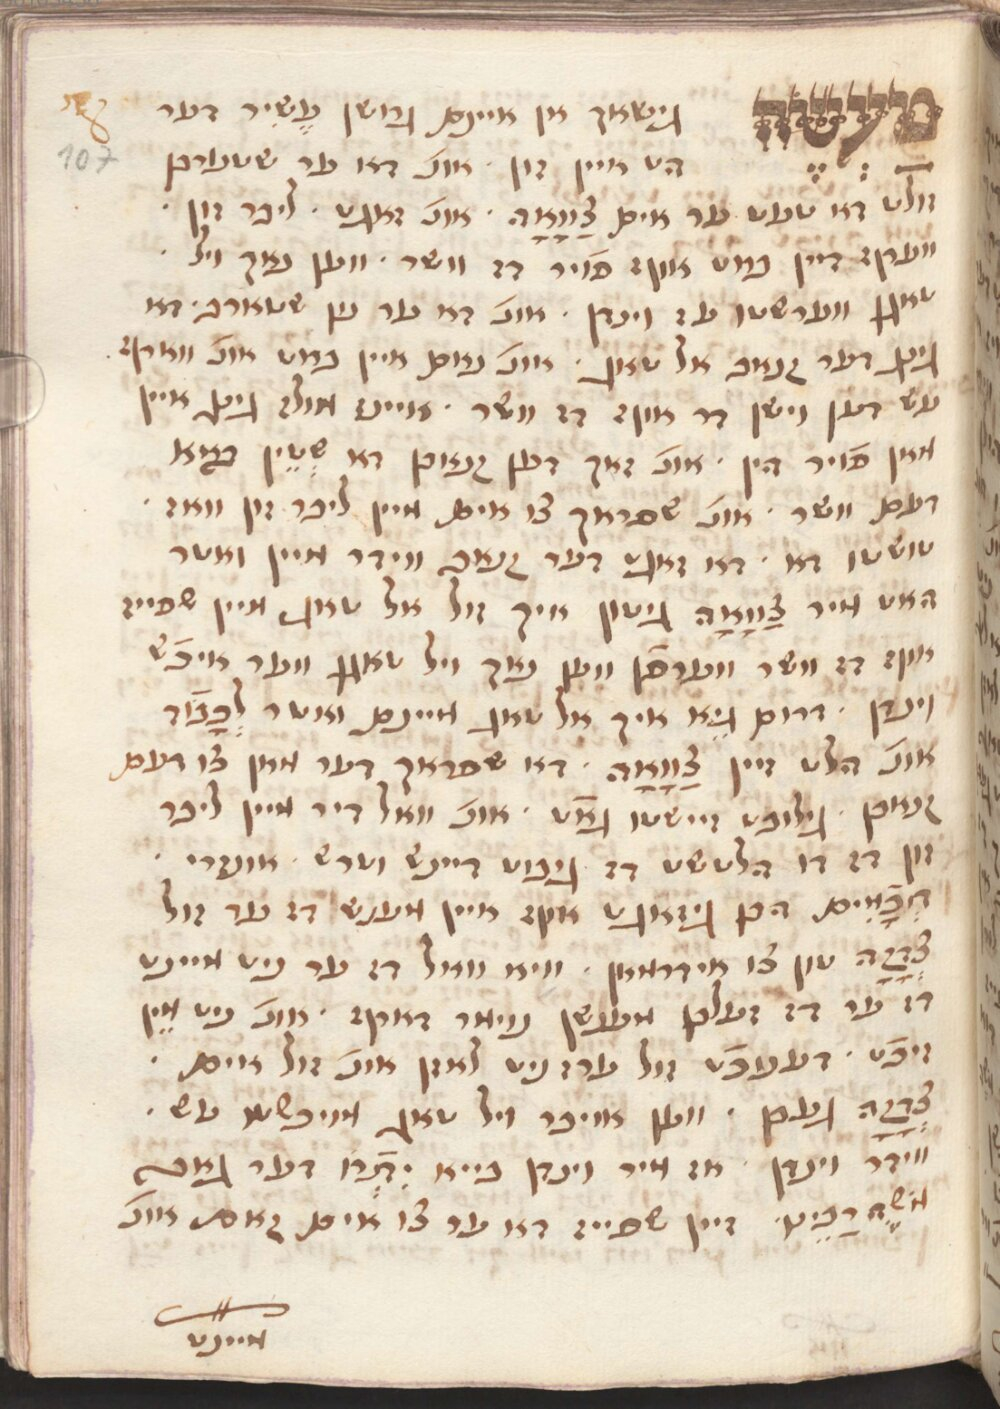 מעשה גישאך אן איינם גרושן עָשִיר דער
107
הט איין זון · אונ' דא ער שטערבן
וולט דא טעט ער אים צַוָואָה · אונ' זאגט · ליבר זון ·
ווערף דיין ברוט אויף פֿויר דז וושר · ווען נאך ויל ·
טאגן ווערשטו עז וינדן · אונ' דא ער נון שטארב · דא
גינג דער קנאב אל טאג · אונ' נאם איין ברוט אונ' ווארף
עש דען וישן דר אויף דז וושר · איינש מולש גינג איין
מאן פֿויר הין · אונ' זאך דען קנאבן דא שְטֵין בֵּייא
דעם וושר · אונ' שפראך צו אים מיין ליבר זון וואז ·
טושטו דא · דא זאגט דער קנאב ווידר מיין ואטר
האט מיר צַוָואָה גיטון איך זול אל טאג מיין שפייז
אויף דז וושר ווערפֿן ווען נאך ויל טאגן ווער איכֿש
וינדן · דרום גֵיא איך אל טאג מיינם ואטר לְכָּבֿוֹד
אונ' הלט זיין צַוָואָה · דא שפראך דער מאן צו דעם
קנאבן · גילובט זיישטו גאט · אונ' וואל דיר מיין ליבר
זון דז דו הלטשט דז גיבוט דיינש וטרש · אונזרי ·
חֲכָמִים הבן גיזאגט אויף איין מענש דז ער זול
צְדָקָה טון צו אידרמאן · וויא וואל דז ער ניט מיינט
דז ער דז זעלבן מענשן נויאר דארף · אונ' ניט מֵין
זיכֿט · דעננוכֿט זול ערז ניט לאזן אונ' זול אים ·
צְדָקָה געבן · ווען אויבר ויל טאג מויכֿשטו עש ·
ווידר וינדן · אז מיר וינדן בייא יִתְרוֹ דער גאב
מֹשֶה רַבֵּינוּ זיין שפייז דא ער צו אים קאם אונ'
מיינט